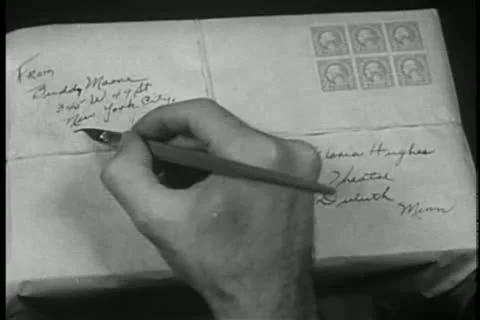 From
Buddy Moore
345 W. 49 St.
New York City.
Hughes
Theatre
Duluth
Minn